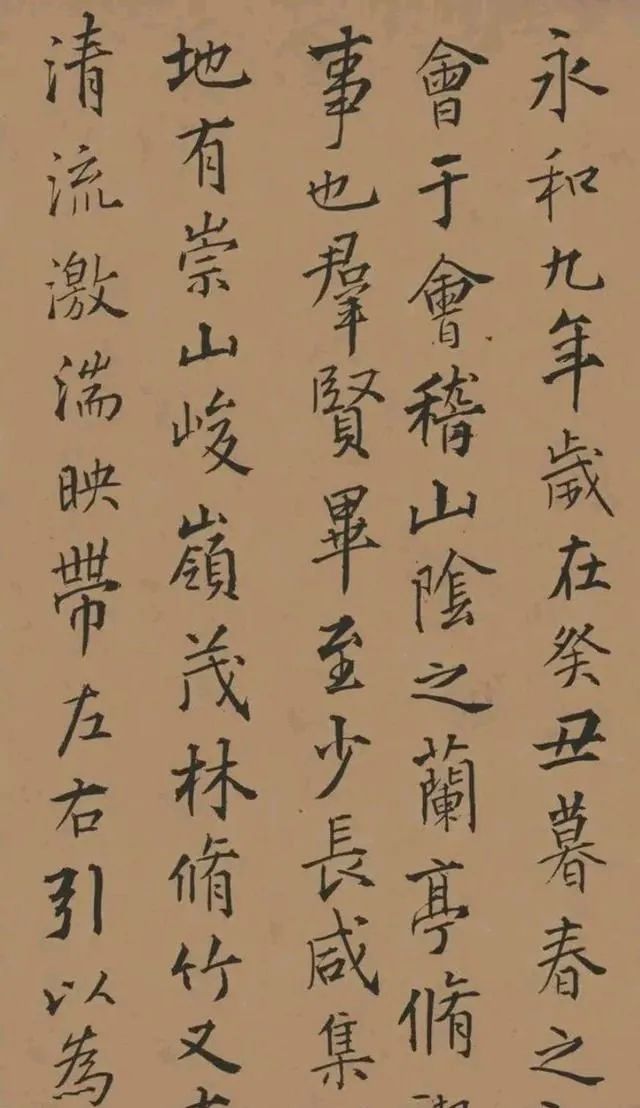 永和九年歲在癸丑暮春之
會于會稽山陰之蘭亭脩
事也羣賢畢至少長咸集
地有崇山峻嶺茂林脩竹又
清流激湍映帶左右引以為